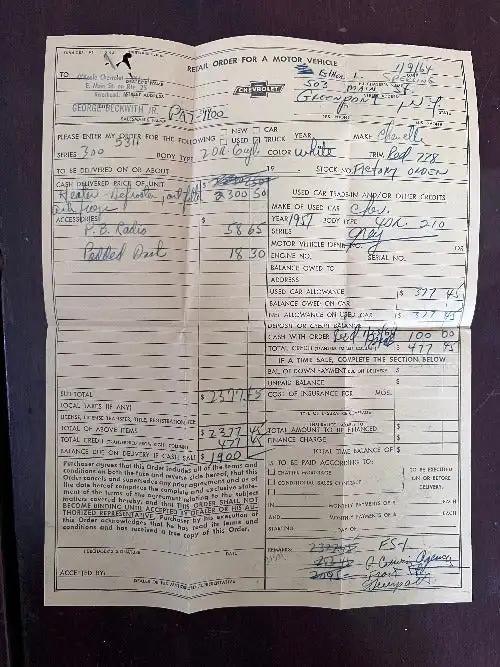 RETAIL ORDER FOR A MOTOR VEHICLE
1/9/64
TO Chevrolet
E. Main St. on Rte 25
Riverhead
CHEVROLET
Esther L.
503 MAIN ST
Greenport N Y
GEORGE BECKWITH JR.
PLEASE ENTER MY ORDER FOR THE FOLLOWING NEW CAR
USED TRUCK YEAR MAKE Chevelle
5311
SERIES 300 BODY TYPE 2 DR. 6cyl COLOR white TRIM Red 778
TO BE DELIVERED ON OR ABOUT 19 STOCK NO. FACTORY ORDER
CASH DELIVERED PRICE OF UNIT $
Heater - Defroster 2300 50
ACCESSORIES
P.B. Radio 58 65
Padded Dash 18 30
USED CAR TRADE-IN AND/OR OTHER CREDITS
MAKE OF USED CAR Chev.
YEAR 1957 BODY TYPE 4DR. 210
SERIES Gray
MOTOR VEHICLE IDENT. NO. OR
ENGINE NO. SERIAL NO.
BALANCE OWED TO
ADDRESS
USED CAR ALLOWANCE $ 377 45
BALANCE OWED ON CAR
NET ALLOWANCE ON USED CAR $ 377 45
DEPOSIT OR CREDIT BALANCE
CASH WITH ORDER 100 00
TOTAL CREDIT $ 477 45
IF A TIME SALE, COMPLETE THE SECTION BELOW
BAL. OF DOWN PAYMENT $
UNPAID BALANCE $
COST OF INSURANCE FOR MOS.
TOTAL AMOUNT TO BE FINANCED $
FINANCE CHARGE $
TOTAL TIME BALANCE OF $
IS TO BE PAID ACCORDING TO:
CHATTEL MORTGAGE
CONDITIONAL SALES CONTRACT
TO BE EXECUTED
ON OR BEFORE
DELIVERY.
IN MONTHLY PAYMENTS OF $ EACH
AND MONTHLY PAYMENTS OF $ EACH
STARTING DAY OF
REMARKS: FS-1
SUB TOTAL $ 2377.45
LOCAL TAXES (IF ANY)
LICENSE, LICENSE TRANSFER, TITLE, REGISTRATION FEE
TOTAL OF ABOVE ITEMS $ 2377 45
TOTAL CREDIT 477 45
BALANCE DUE ON DELIVERY IF CASH SALE $ 1900
Purchaser agrees that this Order includes all of the terms and
conditions on both the face and reverse side hereof, that this
Order cancels and supersedes any prior agreement and as of
the date hereof comprises the complete and exclusive state-
ment of the terms of the agreement relating to the subject
matters covered hereby, and that THIS ORDER SHALL NOT
BECOME BINDING UNTIL ACCEPTED BY DEALER OR HIS AU-
THORIZED REPRESENTATIVE. Purchaser by his execution of
this Order acknowledges that he has read its terms and
conditions and has received a true copy of this Order.
PURCHASER'S SIGNATURE DATE
ACCEPTED BY:
DEALER OR HIS AUTHORIZED REPRESENTATIVE